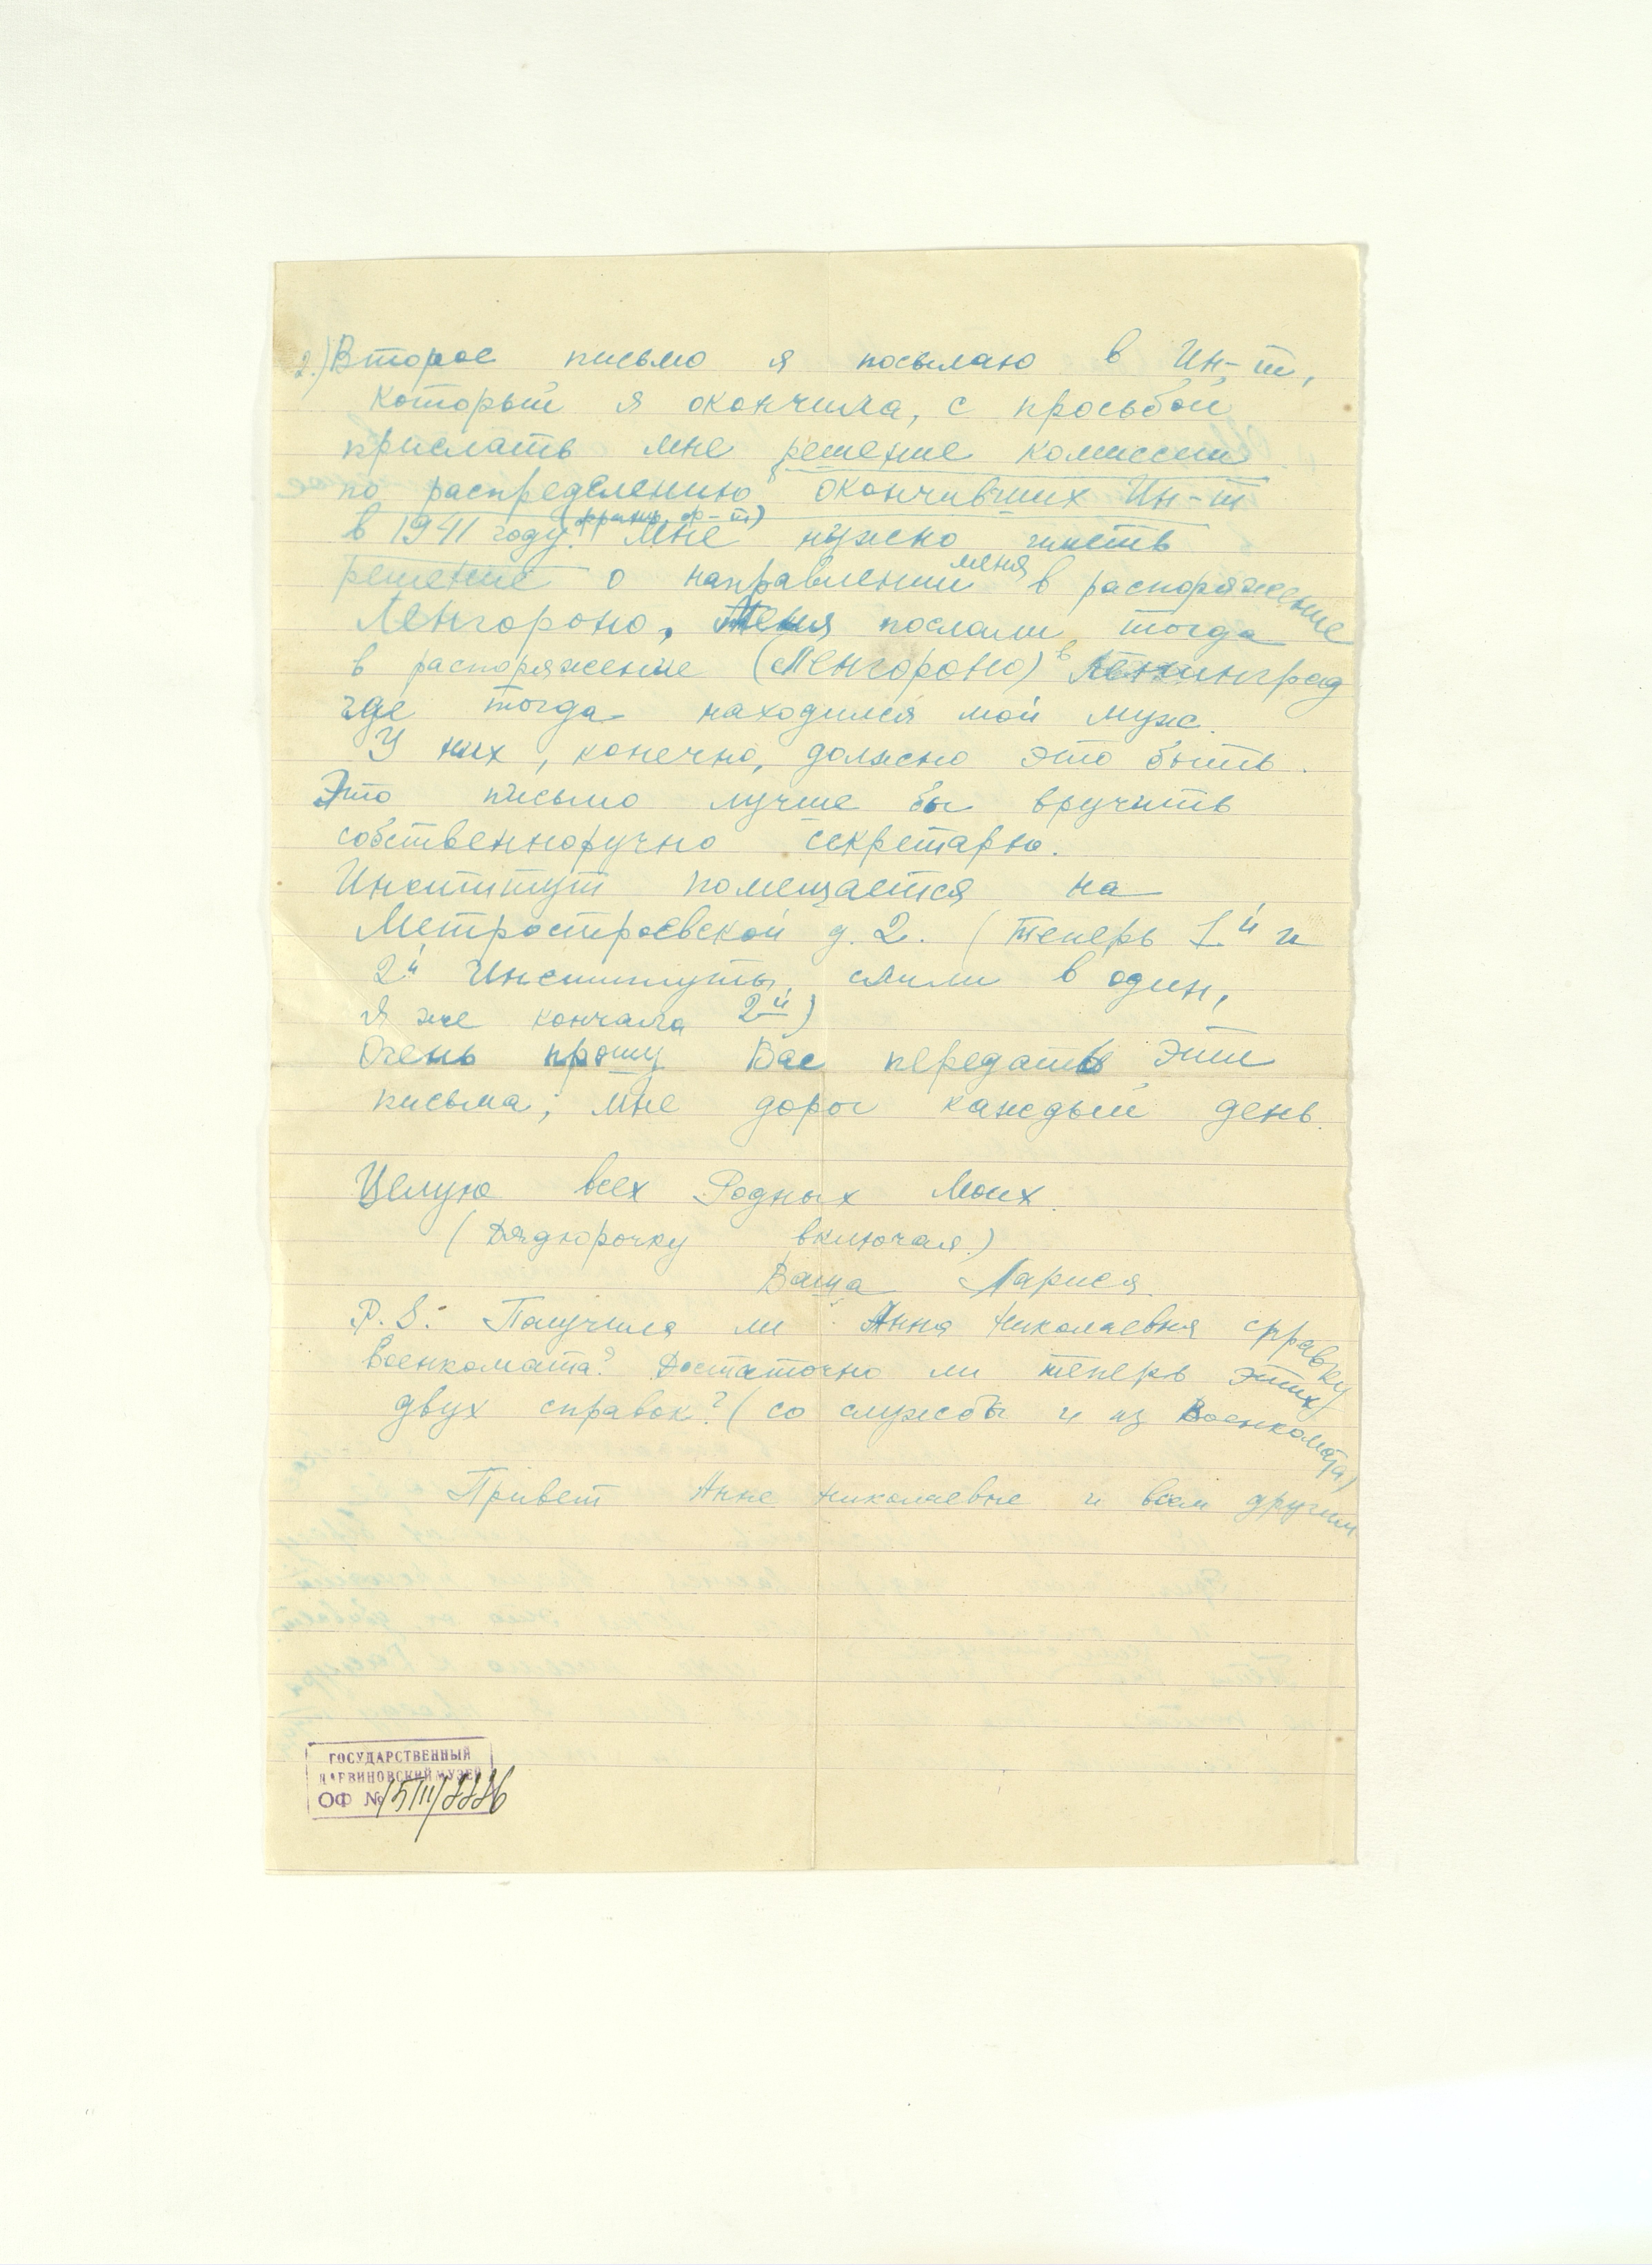 2.) Второе письмо я посылаю в Ин-т,
который я окончила, с просьбой
прислать мне решение комиссии
по распределению окончивших Ин-т
(франц. ф-т)
в 1941 году. Мне нужно иметь
решение о направлении меня в распоряжение
Ленгороно, меня послали тогда
в распоряжение (Ленгороно) в Ленинград
где тогда находился мой муж.
У них, конечно, должно это быть.
Это письмо лучше бы вручить
собственноручно секретарю.
Институт помещается на
Метростроевской д. 2. (теперь 1й и
2й Институты слили в один,
я же кончала 2й)
Очень прошу Вас передать эти
письма; мне дорог каждый день.
Целую всех Родных Моих.
(Дядюрочку включая.)
Ваша Лариса.
P.S. Получила ли Анна Николаевна справку
Военкомата? Достаточно ли теперь этих
двух справок? (со службы и из Военкомата)
Привет Анне Николаевне и всем другим
ГОСУДАРСТВЕННЫЙ
ДАРВИНОВСКИЙ МУЗЕЙ
ОФ №